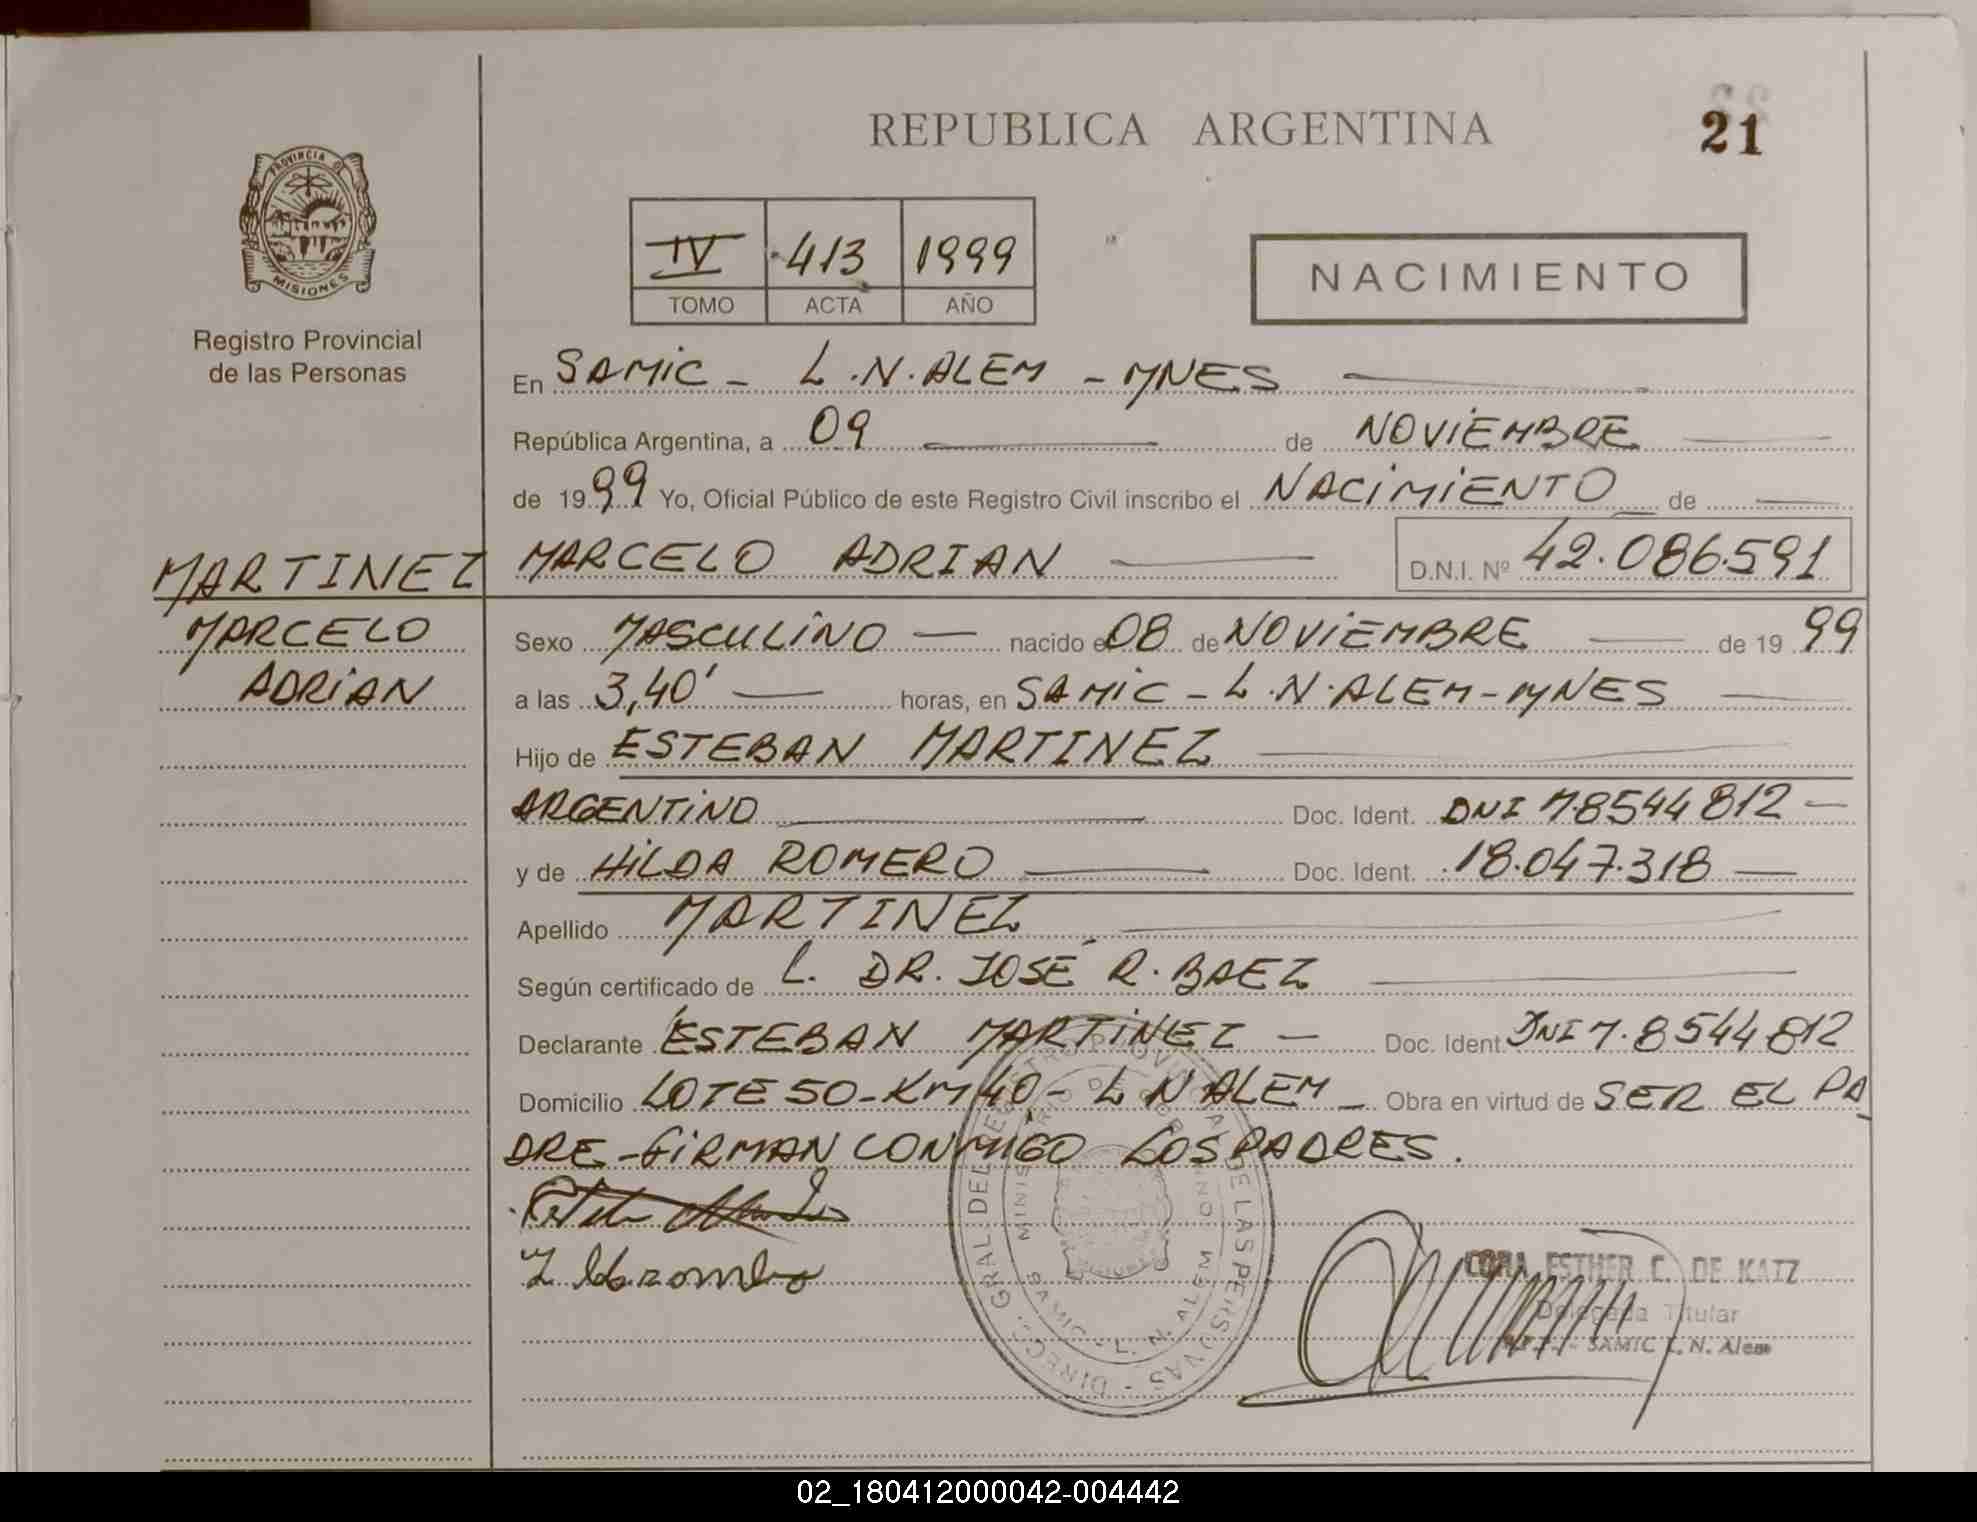 REPUBLICA ARGENTINA
21
PROVINCIA DE
MISIONES
Registro Provincial
de las Personas
IV 413 1999
TOMO ACTA AÑO
NACIMIENTO
En SAMIC - L.N.ALEM - MNES
República Argentina, a 09 de NOVIEMBRE
de 1999 Yo, Oficial Público de este Registro Civil inscribo el NACIMIENTO de
MARTINEZ MARCELO ADRIAN D.N.I. Nº 42.086.591
MARCELO
ADRIAN
Sexo MASCULINO nacido el 08 de NOVIEMBRE de 1999
a las 3,40' horas, en SAMIC - L.N.ALEM - MNES
Hijo de ESTEBAN MARTINEZ
ARGENTINO Doc. Ident. DNI M.8544812
y de HILDA ROMERO Doc. Ident. 18.047.318
Apellido MARTINEZ
Según certificado de L. DR. JOSÉ R. BAEZ
Declarante ESTEBAN MARTINEZ Doc. Ident. DNI M.8544812
Domicilio LOTE 50 - KM 40 - L N ALEM Obra en virtud de SER EL PA
DRE - FIRMAN CONMIGO LOS PADRES.
DIRECC. GRAL DEL REGISTRO PROVINCIAL DE LAS PERSONAS
MINISTERIO DE GOBIERNO
SAMIC - L. N. ALEM
CORA ESTHER C. DE KATZ
Delegada Titular
SAMIC L. N. Alem
02_180412000042-004442